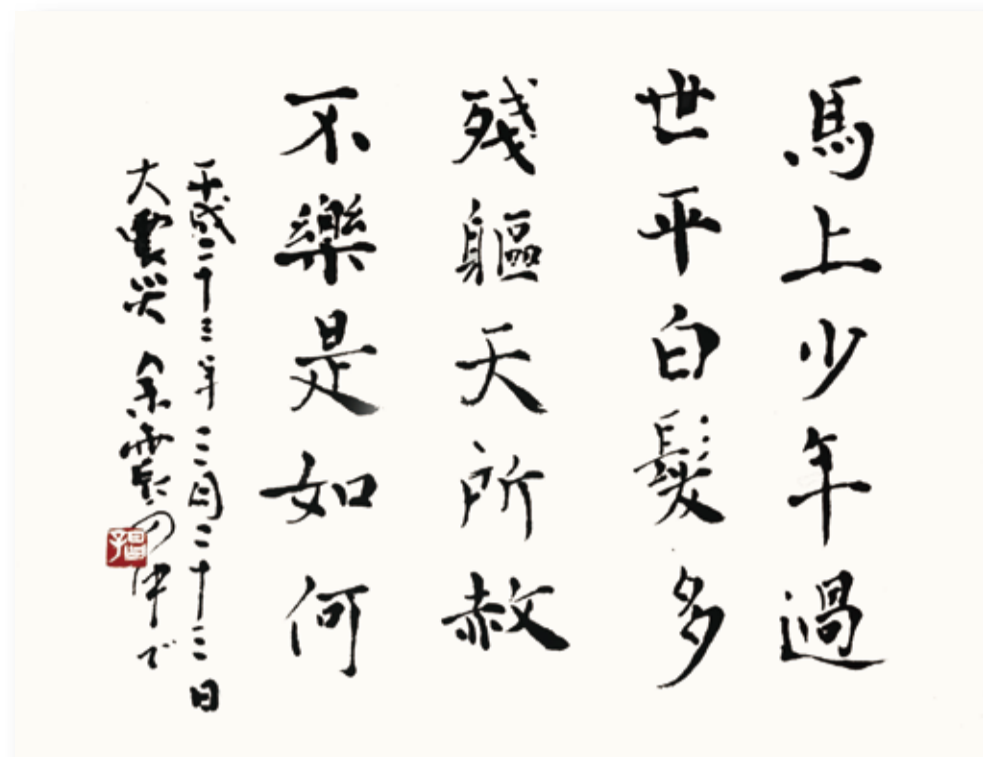 馬上少年過
世平白髮多
殘軀天所赦
不樂是如何
平成二十三年三月二十三日
大震災 余震の中で